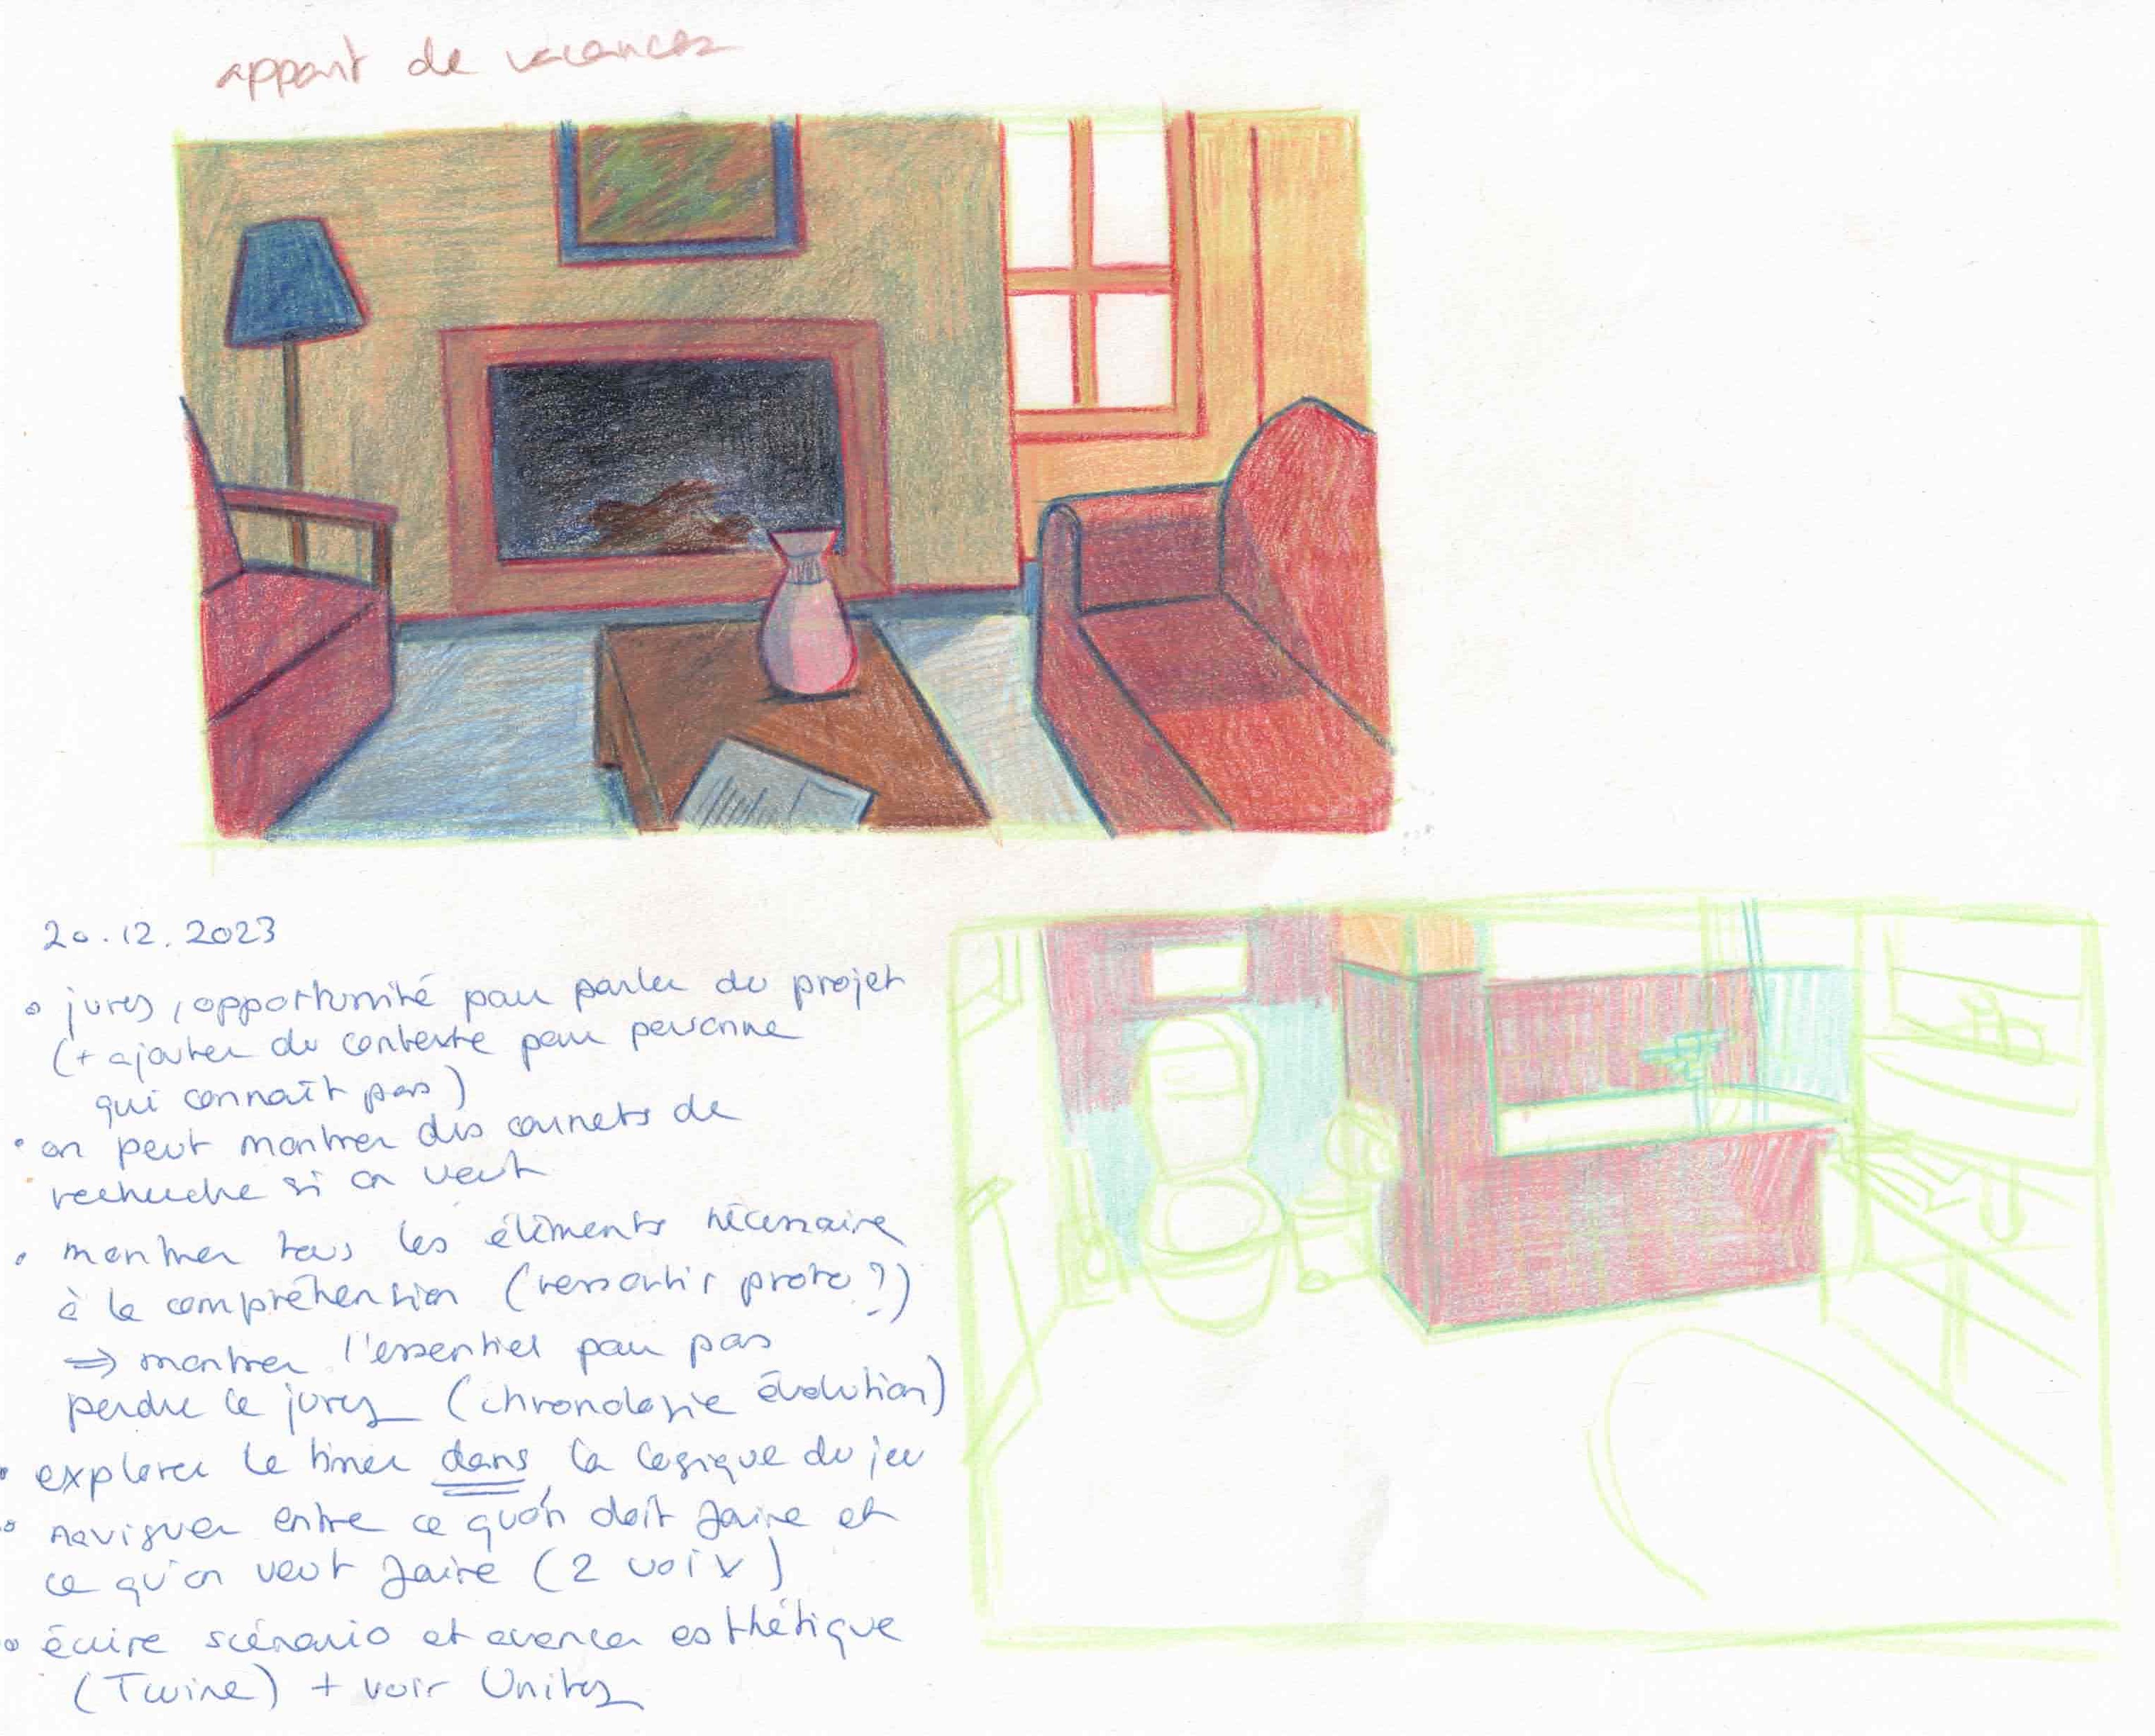 appart de vacances
20.12.2023
• jury, opportunité pour parler du projet
(+ ajouter du contexte pour personne
qui connaît pas)
• on peut montrer des carnets de
recherche si on veut
• montrer tous les éléments nécessaire
à la compréhension (ressortir proto?)
⇒ montrer l'essentiel pour pas
perdre le jury (chronologie évolution)
• explorer le timer dans la logique du jeu
• naviguer entre ce qu'on doit faire et
ce qu'on veut faire (2 voix)
• écrire scénario et avancer esthétique
(Twine) + voir Unity